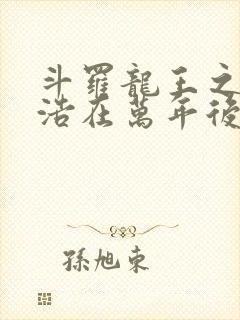 斗羅龍王之
浩在萬年後
孫旭東